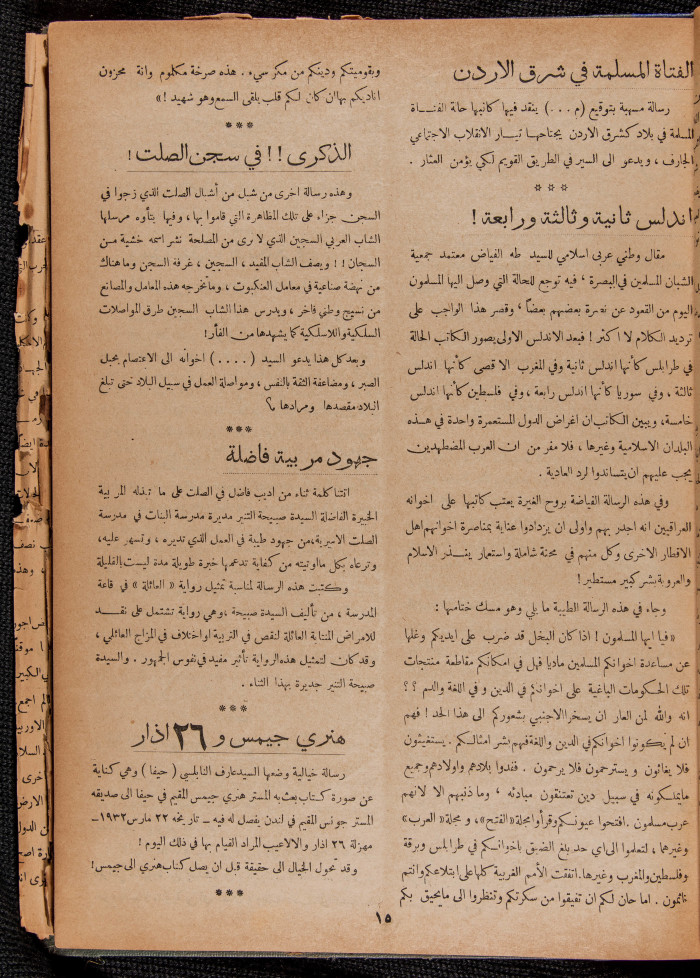 الفتاة المسلمة في شرق الاردن
رسالة مسهبة بتوقيع (م . . .) ينقد فيها كاتبها حالة الفتاة
المسلمة في بلاد كشرق الاردن يجتاحها تيار الانقلاب الاجتماعي
الجارف ، ويدعو الى السير في الطريق القويم لكي يؤمن العثار .
* * *
اندلس ثانية وثالثة ورابعة !
مقال وطني عربي اسلامي للسيد طه الفياض معتمد جمعية
الشبان المسلمين في البصرة ، فيه توجع للحالة التي وصل اليها المسلمون
اليوم من القعود عن نصرة بعضهم بعضاً ، وقصر هذا الواجب على
ترديد الكلام لا اكثر ! فبعد الاندلس الاولى يصور الكاتب الحالة
في طرابلس كأنها اندلس ثانية وفي المغرب الاقصى كأنها اندلس
ثالثة ، وفي سوريا كأنها اندلس رابعة ، وفي فلسطين كأنها اندلس
خامسة ، ويبين الكاتب ان اغراض الدول المستعمرة واحدة في هذه
البلدان الاسلامية وغيرها ، فلا مفر من ان العرب المضطهدين
يجب عليهم ان يتساندوا لرد العادية .
وفي هذه الرسالة الفياضة بروح الغيرة يعتب كاتبها على اخوانه
العراقيين انه اجدر بهم واولى ان يزدادوا عناية بمناصرة اخوانهم اهل
الاقطار الاخرى وكل منهم في محنة شاملة واستعمار ينذر الاسلام
والعروبة بشر كبير مستطير !
وجاء في هذه الرسالة الطيبة ما يلي وهو مسك ختامها :
« فيا ايها المسلمون ! اذا كان البخل قد ضرب على ايديكم وغلها
عن مساعدة اخوانكم المسلمين ماديا فهل في امكانكم مقاطعة منتجات
تلك الحكومات الباغية على اخوانكم في الدين و في اللغة والدم ؟ ؟
انه والله لمن العار ان يسخر الاجنبي بشعوركم الى هذا الحد ! فهم
ان لم يكونوا اخوانكم في الدين واللغة فهم بشر امثالكم . يستغيثون
فلا يغاثون و يسترحمون فلا يرحمون . ففدوا بلادهم واولادهم وجميع
ما يملكونه في سبيل دين تعتنقون مبادئه ، وما ذنبهم الا لانهم
عرب مسلمون . افتحوا عيونكم وقرأوا مجلة « الفتح » ، و مجلة « العرب »
وغيرها ، لتعلموا الى اي حد بلغ الضيق باخوانكم في طرابلس وبرقة
وفلسطين والمغرب وغيرها . اتفقت الأمم الغربية كلها على ابتلاعكم وانتم
نائمون . اما حان لكم ان تفيقوا من سكرتكم وتنظروا الى ما يحيق بكم
وبقوميتكم ودينكم من مكر سيء . هذه صرخة مكلوم وانة محزون
اناديكم بها ان كان لكم قلب يلقي السمع وهو شهيد ! »
* * *
الذكرى !! في سجن الصلت !
وهذه رسالة اخرى من شبل من أشبال الصلت الذي زجوا في
السجن جزاء على تلك المظاهرة التي قاموا بها ، وفيها يتأوه مرسلها
الشاب العربي السجين الذي لا نرى من المصلحة نشر اسمه خشية من
السجان ! ! ويصف الشاب المقيد ، السجين ، غرفة السجن وما هناك
من نهضة صناعية في معامل العنكبوت ، وما تخرجه هذه المعامل والمصانع
من نسيج وطني فاخر ، ويدرس هذا الشاب السجين طرق المواصلات
السلكية واللاسلكية كما يشهدها من الفأر !
وبعد كل هذا يدعو السيد ( . . . . ) اخوانه الى الاعتصام بحبل
الصبر ، ومضاعفة الثقة بالنفس ، ومواصلة العمل في سبيل البلاد حتى تبلغ
البلاد مقصدها ومرادها
* * *
جهود مربية فاضلة
اتتنا كلمة ثناء من اديب فاضل في الصلت على ما تبذله المربية
الخبيرة الفاضلة السيدة صبيحة التنير مديرة مدرسة البنات في مدرسة
الصلت الاميرية ، من جهود طيبة في العمل الذي تديره ، وتسهر عليه ،
وترعاه بكل ما اوتيته من كفاية تدعمها خبرة طويلة مدة ليست بالقليلة
وكتبت هذه الرسالة لمناسبة تمثيل رواية « العائلة » في قاعة
المدرسة ، من تأليف السيدة صبيحة ، وهي رواية تشتمل على نقد
للامراض المنتابة العائلة لنقص في التربية او اختلاف في المزاج العائلي ،
وقد كان لتمثيل هذه الرواية تأثير مفيد في نفوس الجمهور . والسيدة
صبيحة التنير جديرة بهذا الثناء .
* * *
هنري جيمس و ٢٦ اذار
رسالة خيالية وضعها السيد عارف النابلسي ( حيفا ) وهي كناية
عن صورة كتاب بعث به المستر هنري جيمس المقيم في حيفا الى صديقه
المستر جونس المقيم في لندن يفصل له فيه – تاريخه ٢٢ مارس ١٩٣٢ –
مهزلة ٢٦ اذار والالاعيب المراد القيام بها في ذلك اليوم !
وقد تحول الخيال الى حقيقة قبل ان يصل كتاب هنري الى جيمس !
* * *
١٥